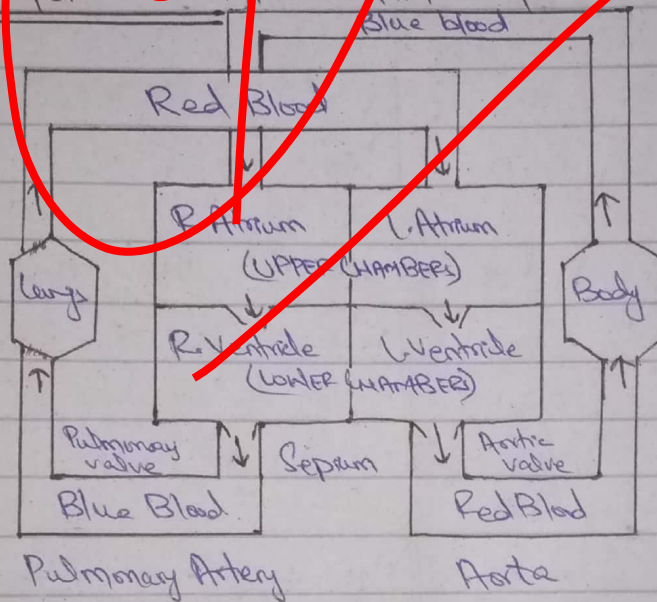 Blue blood
Red Blood
R. Atrium L. Atrium
(UPPER CHAMBERS)
Lungs Body
R. Ventricle L. Ventricle
(LOWER CHAMBERS)
Pulmonary valve
Septum
Aortic valve
Blue Blood Red Blood
Pulmonary Artery Aorta